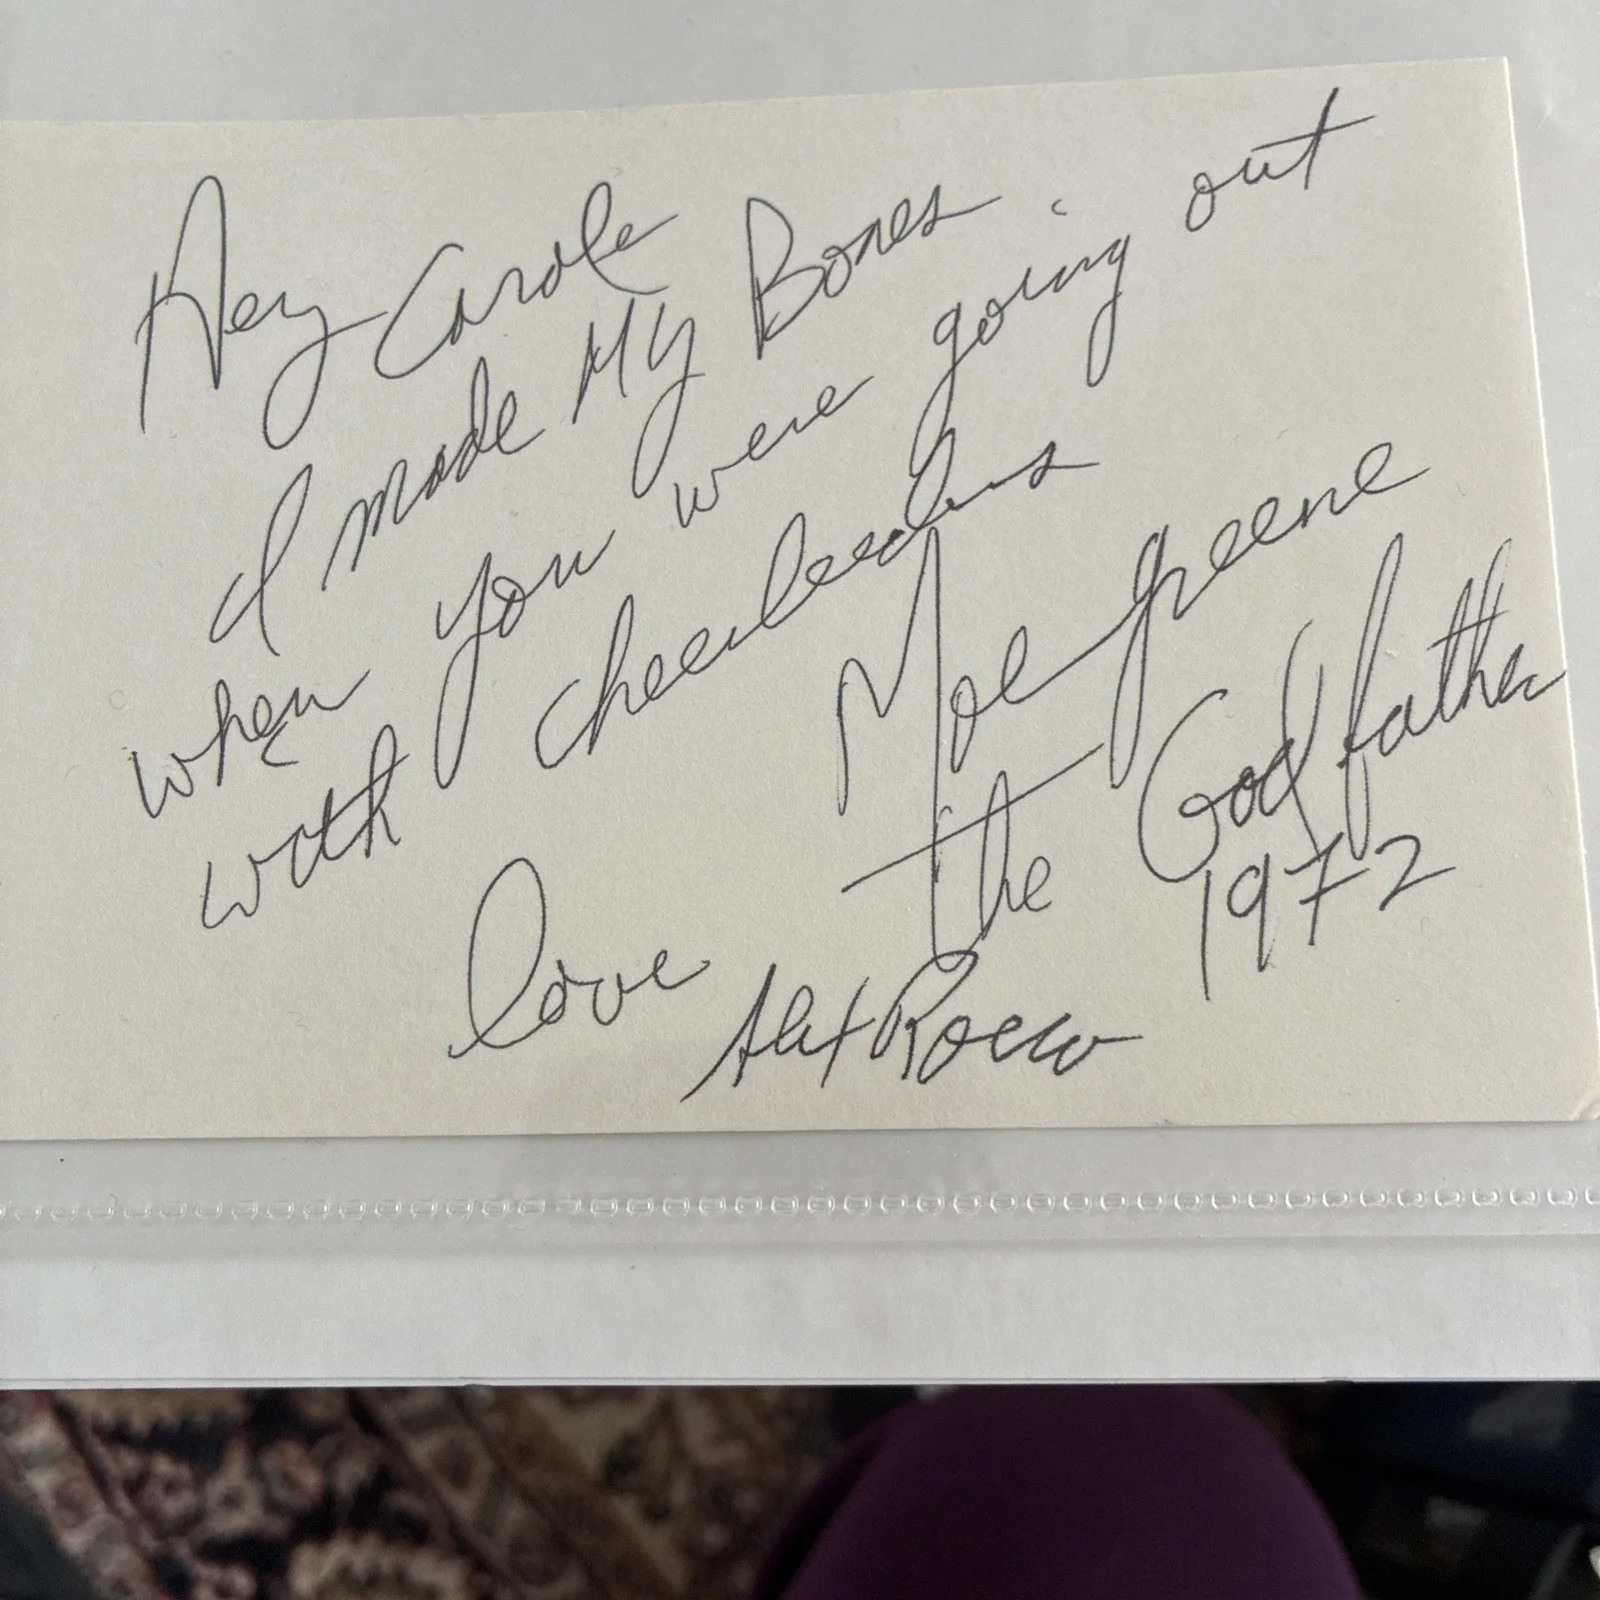 Hey Carole
I made My Bones
when you were going out
with cheerleaders
Moe Greene
the Godfather
1972
love Alex Rocco